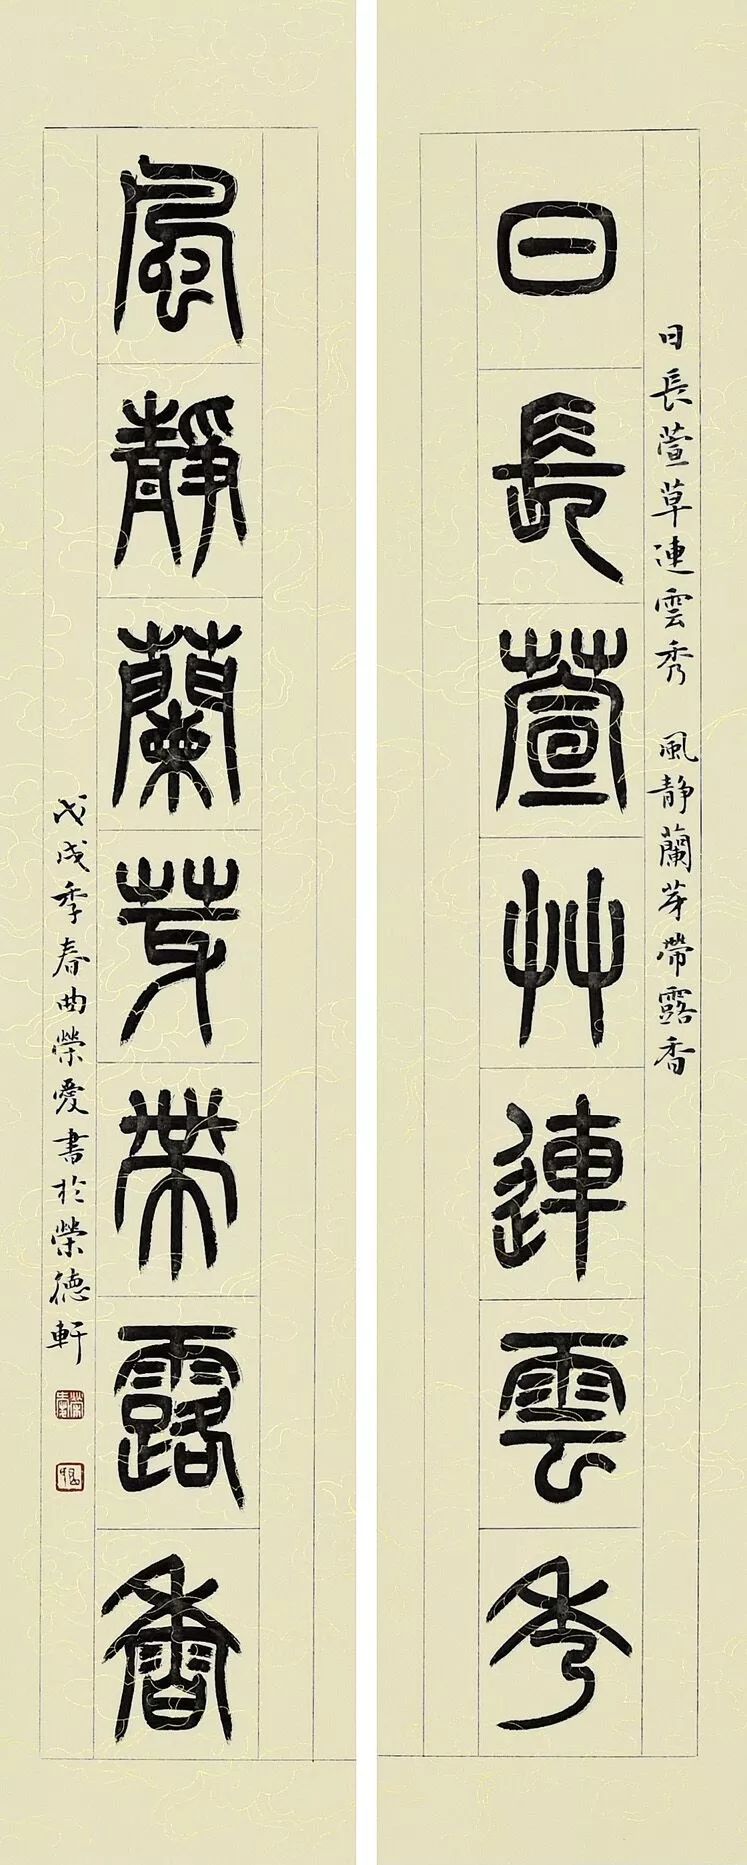 日長萱艸連雲秀
日長萱草連雲秀 風靜蘭芽帶露香
風靜蘭芽帶露香
戊戌季春曲榮愛書於榮德軒